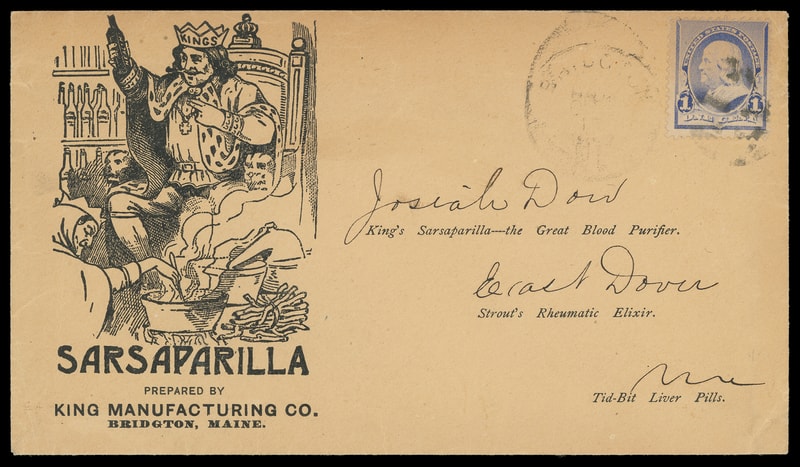 KINGS
SARSAPARILLA
PREPARED BY
KING MANUFACTURING CO.
BRIDGTON, MAINE.
UNITED STATES POSTAGE
1 1
Josiah Dow
King's Sarsaparilla—the Great Blood Purifier.
East Dover
Strout's Rheumatic Elixir.
Me
Tid-Bit Liver Pills.